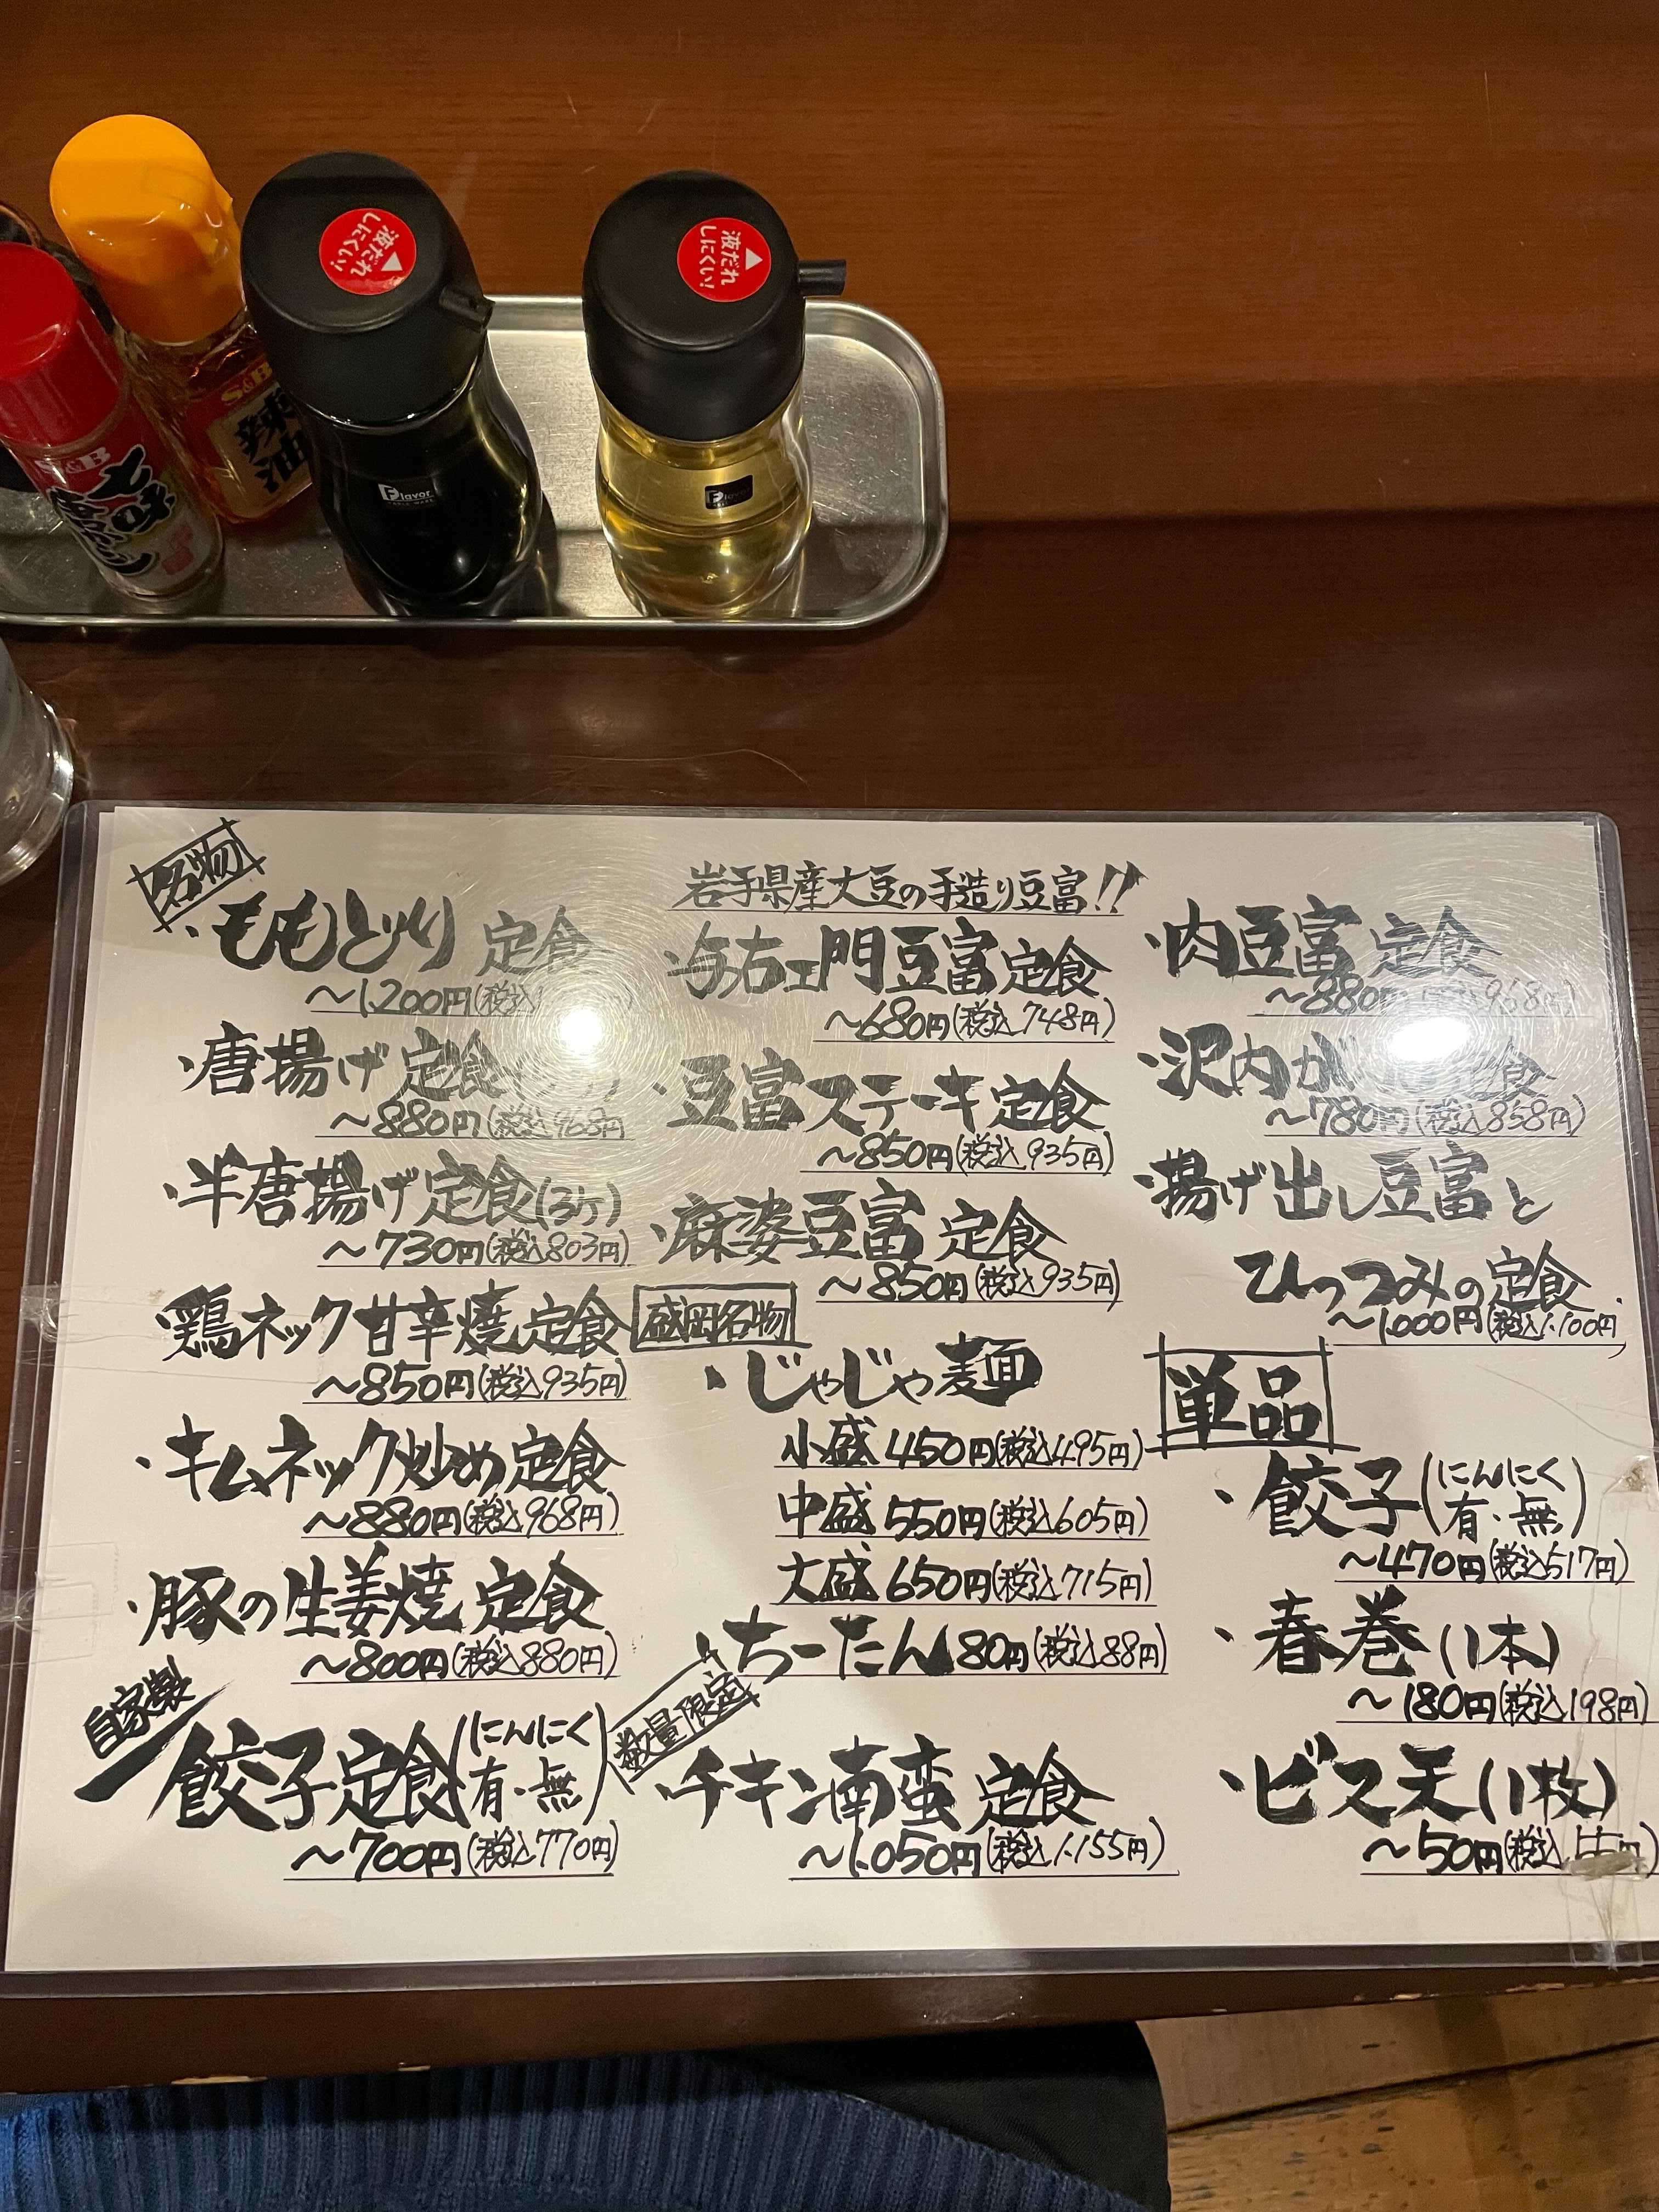 液だれ
しにくい!
液だれ
しにくい!
S&B
辣油
S&B
七味
Flavor
Flavor
名物
・ももどり定食
〜1,200円(税込
・唐揚げ定食
〜880円(税込968円
・半唐揚げ定食(3ケ)
〜730円(税込803円)
・鶏ネック甘辛焼定食
〜850円(税込935円)
・キムネック炒め定食
〜880円(税込968円)
・豚の生姜焼定食
〜800円(税込880円)
自家製
餃子定食(にんにく
有・無)
〜700円(税込770円)
岩手県産大豆の手造り豆富!!
・与右ェ門豆富定食
〜680円(税込748円)
・豆富ステーキ定食
〜850円(税込935円)
・麻婆豆富定食
〜850円(税込935円)
盛岡名物
・じゃじゃ麺
小盛450円(税込495円)
中盛550円(税込605円)
大盛650円(税込715円)
・ちーたん80円(税込88円)
数量限定
・チキン南蛮定食
〜1,050円(税込1,155円)
・肉豆富定食
〜880円 968円
・沢内が 食
〜780円(税込858円)
・揚げ出し豆富と
ひっつみの定食
〜1,000円(税込1,100円)
単品
・餃子(にんにく
有・無)
〜470円(税込517円)
・春巻(1本)
〜180円(税込198円)
・ビス天(1枚)
〜50円(税込55円)